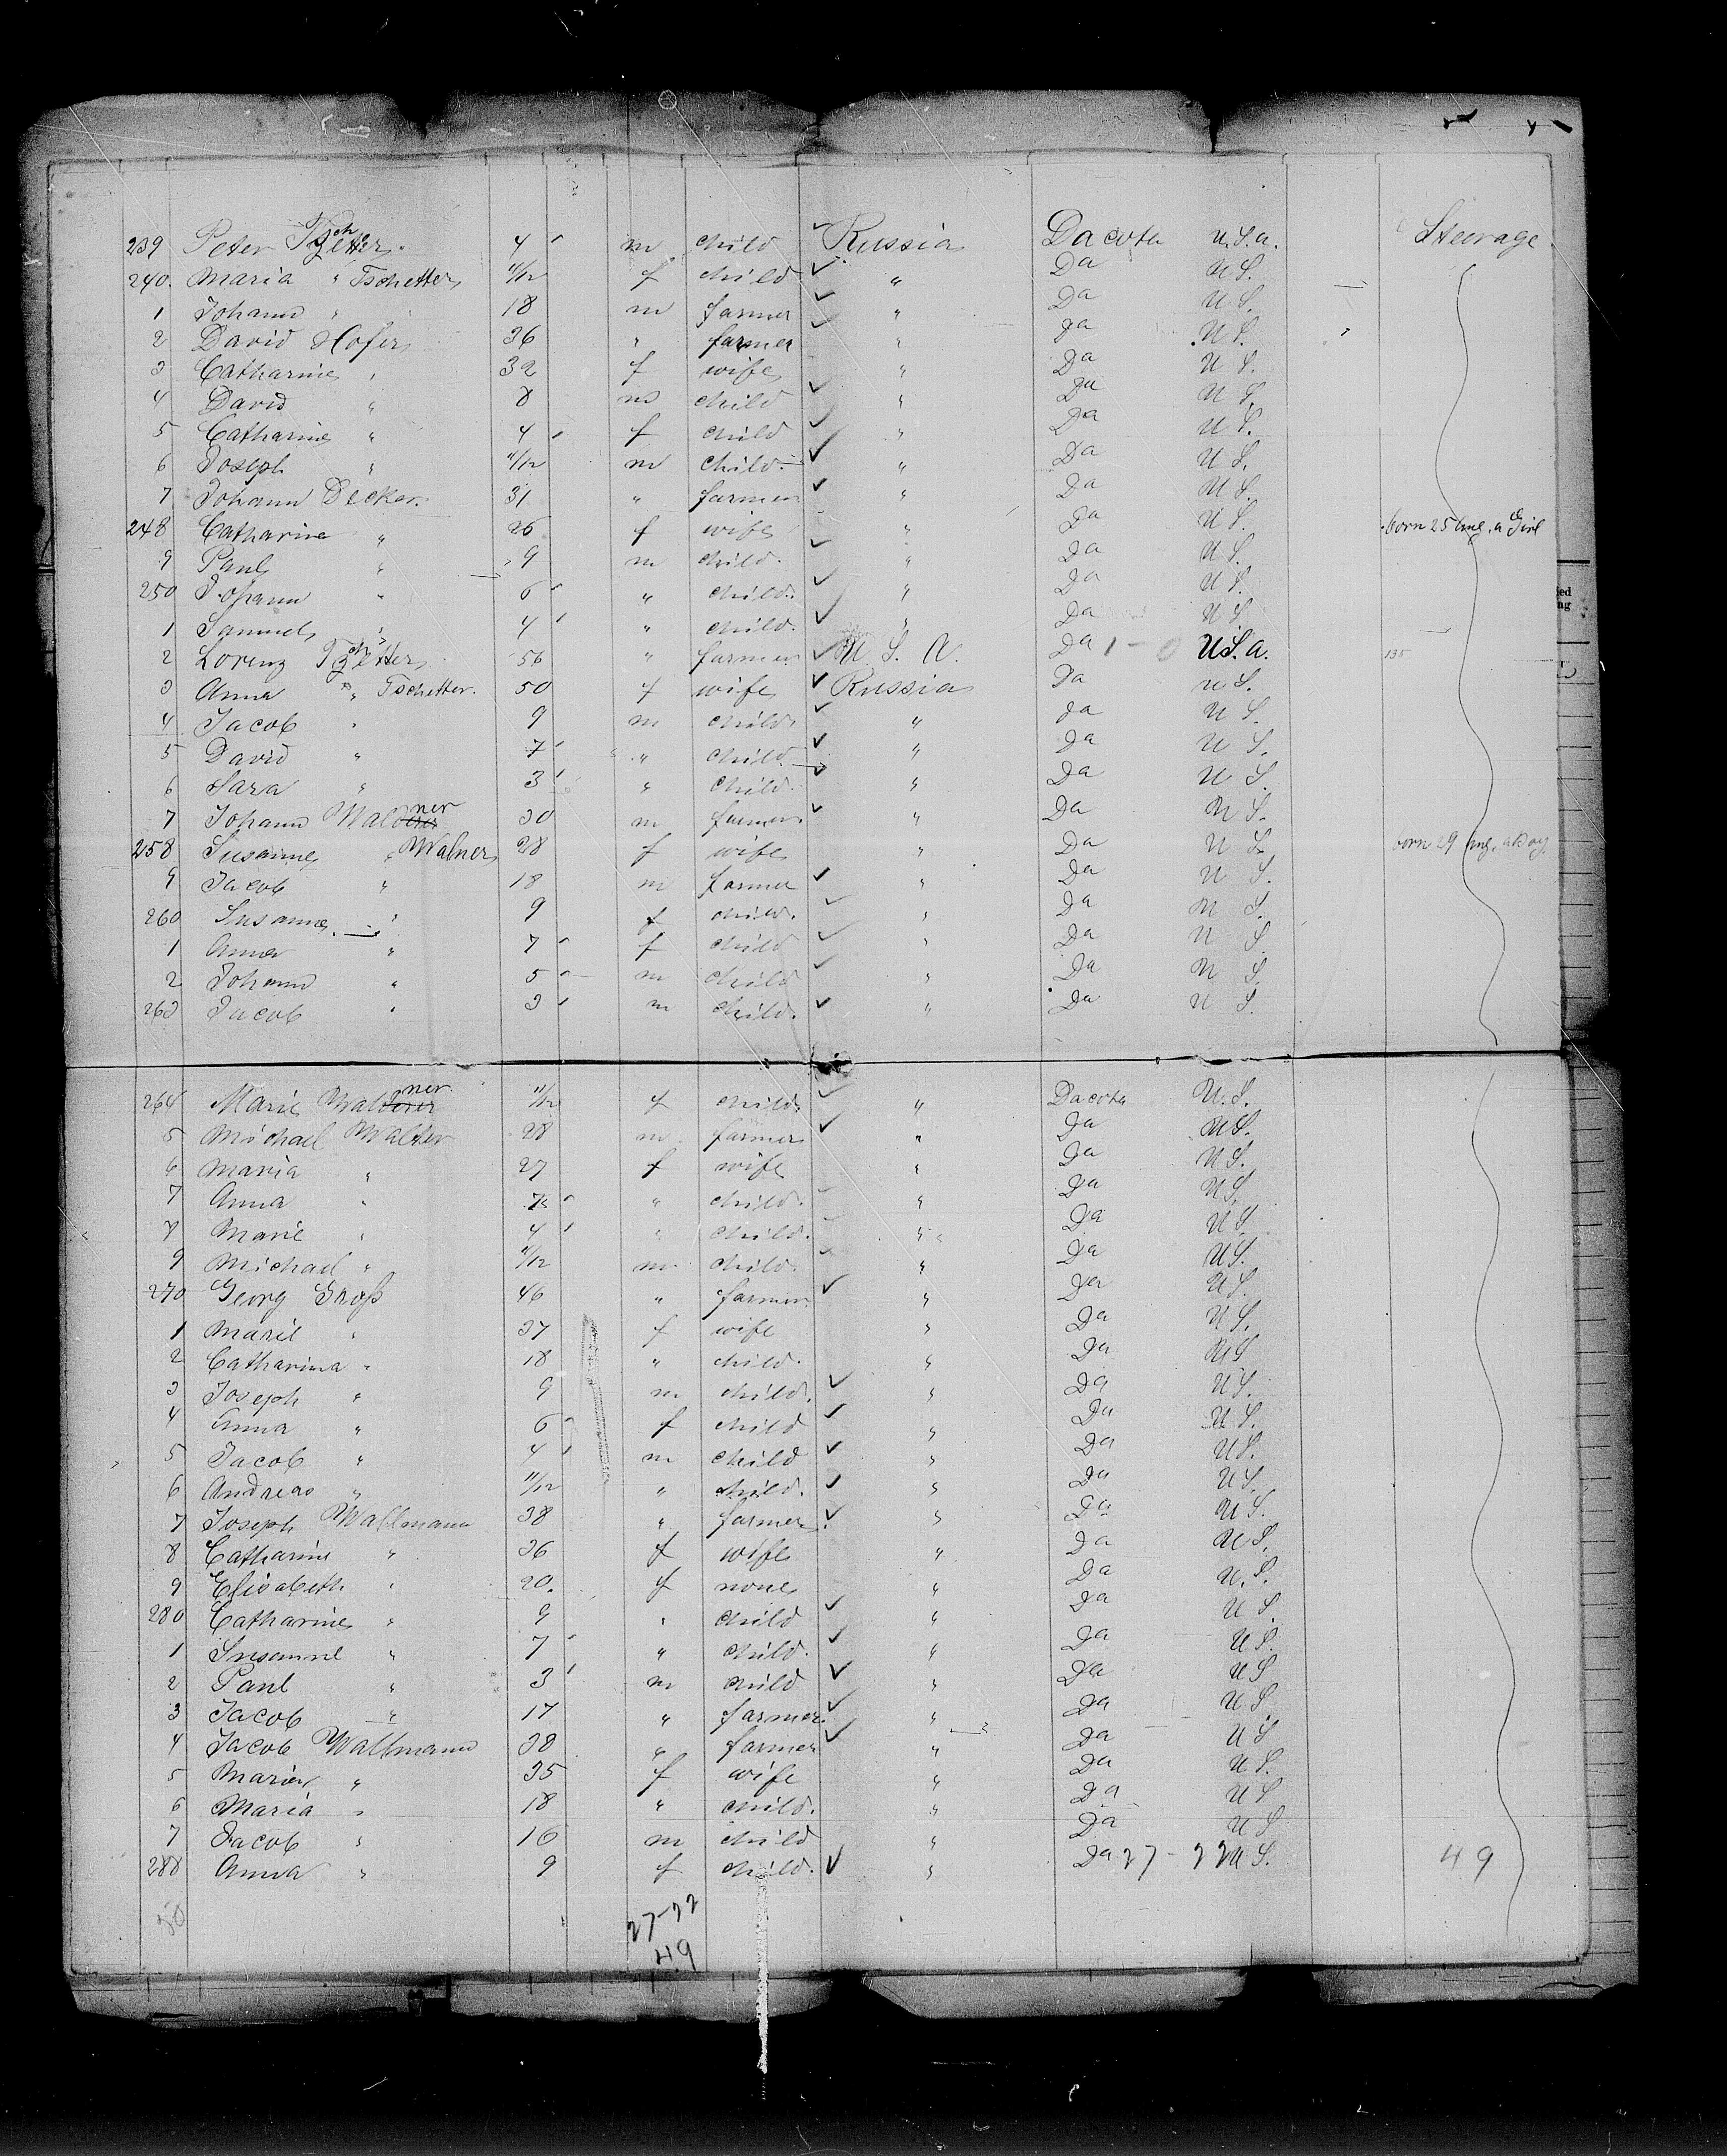 239 Peter Tschetter 4 m child Russia Dacota U.S.A. Steerage
240. Maria " Tschetter 11/12 f child " Da U S.
1 Johann " 18 m farmer " Da U S.
2 David Hofer 36 " farmer " Da U S.
3 Catharine " 32 f wife " Da U S.
4 David " 8 m child " Da U S.
5 Catharine " 4 f child " Da U S.
6 Joseph " 11/12 m child. " Da U S.
7 Johann Decker. 31 " farmer " Da U S.
248 Catharine " 26 f wife " Da U S. born 25 Aug. a Girl
9 Paul " 9 m child. " Da U S.
250 Johann " 6 " child. " Da U S.
1 Samuel " 4 " child. " Da U S
2 Lorenz Tschetter 56 " farmer U. S. A. Da 1 - 0 U.S.A. 135
3 Anna " Tschetter. 50 f wife Russia Da U S.
4 Jacob " 9 m child " Da U S.
5 David " 7 " child " Da U S.
6 Sara " 3 " child. " Da U S.
7 Johann Waldner 30 m farmer " Da U S.
258 Susanna " Walner 28 f wife " Da U S. born 29 Aug. a Boy.
9 Jacob " 18 m farmer " Da U S.
260 Susanna " 9 f child. " Da U S.
1 Anna " 7 f child " Da U S.
2 Johann " 5 m child " Da U S.
263 Jacob " 3 m child. " Da U S.
264 Marie Waldner 11/12 f child " Dacota U.S.
5 Michael Walter 28 m farmer " Da U S.
6 Maria " 27 f wife " Da U S.
7 Anna " 7 " child. " Da U S.
8 Marie " 4 " child. " Da U S
9 Michael " 11/12 m child. " Da U S.
270 Georg Groß 46 " farmer " Da U S.
1 Marie " 37 f wife " Da U S.
2 Catharina " 18 " child. " Da U S
3 Joseph " 9 m child. " Da U S.
4 Anna " 6 f child " Da U S.
5 Jacob " 4 m child " Da U S.
6 Andreas " 11/12 " child. " Da U S.
7 Joseph Wallmann 38 " farmer. " Da U S.
8 Catharine " 36 f wife " Da U S.
9 Elisabeth " 20. f none " Da U. S.
280 Catharine " 9 " child " Da U S.
1 Susanne " 7 " child. " Da U S.
2 Paul " 3 m child " Da U S
3 Jacob " 17 " farmer. " Da U S.
4 Jacob Wallmann 38 " farmer " Da U S
5 Maria " 35 f wife " Da U S.
6 Maria " 18 " child. " Da U S
7 Jacob " 16 m child " Da U S
288 Anna " 9 f child. " Da 27 - 22 U S. 49
50 27-22
49